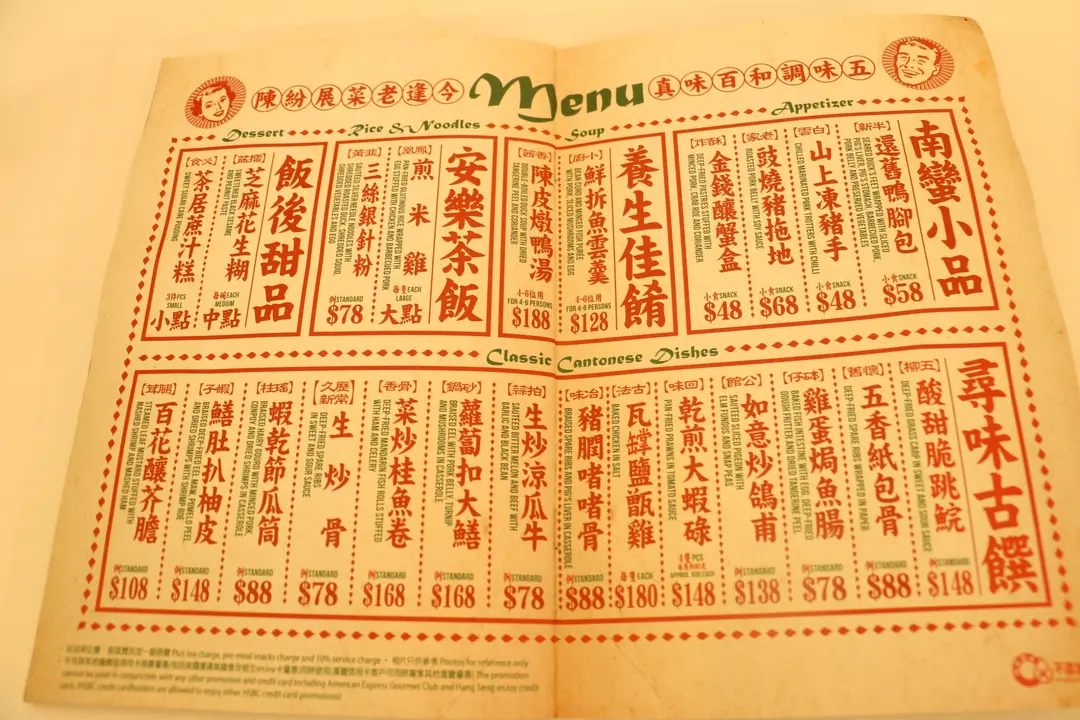 五味調和百味真
Menu
今逢老菜展紛陳
Appetizer
南蠻小品
半新
還舊鴨腳包
SEARED DUCK'S FEET WRAPPED WITH SLICED
PIG'S LIVER, PIG'S STOMACH, BARBECUED PORK,
PORK BELLY AND PRESERVED VEGETABLES
小食SNACK
$58
白雲
山上凍豬手
CHILLED MARINATED PORK TROTTERS WITH CHILLI
小食SNACK
$48
老家
豉燒豬拖地
ROASTED PORK BELLY WITH SOY SAUCE
小食SNACK
$68
酥炸
金錢釀蟹盒
DEEP-FRIED PASTRIES STUFFED WITH
MINCED PORK, CRAB ROE AND CORIANDER
小食SNACK
$48
Soup
養生佳餚
小廚
鮮拆魚雲羹
BEAN CURD AND MINCED FISH PUREE
WITH PORK, SLICED MUSHROOMS AND EGG
4-6位用
FOR 4-6 PERSONS
$128
茜香
陳皮燉鴨湯
DOUBLE-BOILED DUCK SOUP WITH DRIED
TANGERINE PEEL AND CORIANDER
4-6位用
FOR 4-6 PERSONS
$188
Rice & Noodles
安樂茶飯
鳳凰
煎米雞
PAN-FRIED GLUTINOUS RICE WRAPPED WITH
EGG STUFFED WITH CHICKEN AND BARBECUED PORK
每隻EACH
LARGE
大點
韭黃
三絲銀針粉
SAUTEED SILVER NEEDLE NOODLES WITH
SHREDDED ROASTED DUCK, SHREDDED SQUID,
SHREDDED VEGETABLES AND EGG
例STANDARD
$78
Dessert
飯後甜品
擂盆
芝麻花生糊
SWEETENED BLACK SESAME
AND PEANUT PASTE
每碗EACH
MEDIUM
中點
必食
茶居蔗汁糕
SWEET SUGAR CANE PUDDING
3件PCS
SMALL
小點
Classic Cantonese Dishes
尋味古饌
五柳
酸甜脆跳鯇
DEEP-FRIED GRASS CARP IN SWEET AND SOUR SAUCE
例STANDARD
$148
懷舊
五香紙包骨
DEEP-FRIED SPARE RIBS WRAPPED IN PAPER
例STANDARD
$88
砵仔
雞蛋焗魚腸
BAKED FISH INTESTINE WITH EGG, DEEP-FRIED
DOUGH FRITTER AND DRIED TANGERINE PEEL
例STANDARD
$78
公館
如意炒鴿甫
SAUTEED SLICED PIGEON WITH
ELM FUNGUS AND SNAP PEAS
例STANDARD
$138
回味
乾煎大蝦碌
PAN-FRIED PRAWNS IN TOMATO SAUCE
4隻PCS
$148
古法
瓦罉鹽甑雞
BAKED CHICKEN IN SALT
每隻EACH
$180
冶味
豬膶啫啫骨
BRAISED SPARE RIBS AND PIG'S LIVER IN CASSEROLE
例STANDARD
$88
拍蒜
生炒涼瓜牛
SAUTEED BITTER MELON AND BEEF WITH
GARLIC AND BLACK BEAN
例STANDARD
$78
砂鍋
蘿蔔扣大鱔
BRAISED EEL WITH PORK BELLY, TURNIP
AND MUSHROOMS IN CASSEROLE
例STANDARD
$168
骨香
菜炒桂魚卷
DEEP-FRIED MANDARIN FISH ROLLS STUFFED
WITH HAM AND CELERY
例STANDARD
$168
歷久常新
生炒骨
DEEP-FRIED SPARE RIBS
IN SWEET AND SOUR SAUCE
例STANDARD
$78
瑤柱
蝦乾節瓜筒
BRAISED HAIRY GOURD WITH MINCED PORK,
CONPOY AND DRIED SHRIMPS IN CASSEROLE
例STANDARD
$88
蝦子
鱔肚扒柚皮
BRAISED DEEP-FRIED EEL MAW, POMELO PEEL
AND DRIED SHRIMPS WITH SHRIMP ROE
例STANDARD
$148
腿茸
百花釀芥膽
STEAMED LEAF MUSTARD STUFFED WITH
MASHED SHRIMP AND MASHED HAM
例STANDARD
$108
Plus tea charge, pre-meal snacks charge and 10% service charge • 相片只供參考 Photos for reference only
The promotion
cannot be used in conjunction with any other promotion and credit card including American Express Gourmet Club and Hang Seng enJoy credit
card. (HSBC credit cardholders are allowed to enjoy other HSBC credit card promotions)